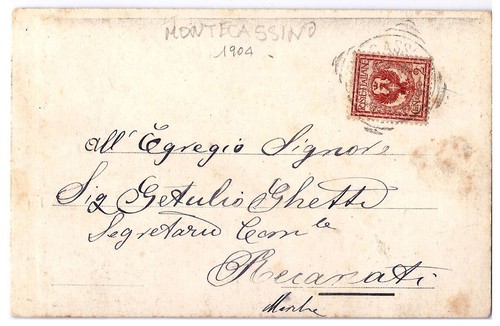 MONTECASSINO
1904
CASS
POSTE ITALIANE
all' Egregio Signore
Sig Getulio Ghetti
Segretario Com le
Recanati
Marche